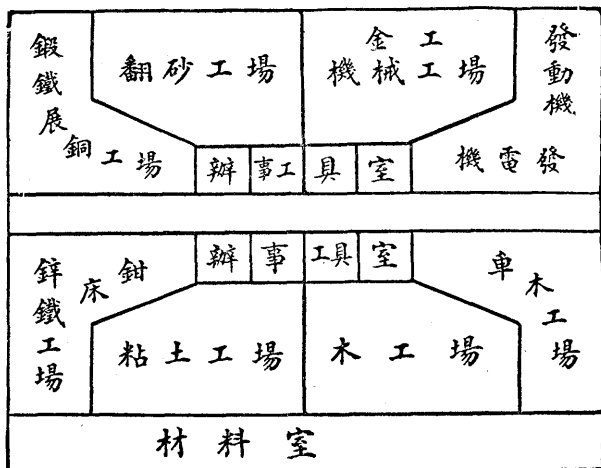 鍛鐵展銅工場
翻砂工場
金工
機械工場
發動機
機電發
辦事工具室
鋅鐵工場
鉗床
辦事工具室
車木工場
粘土工場
木工場
材料室